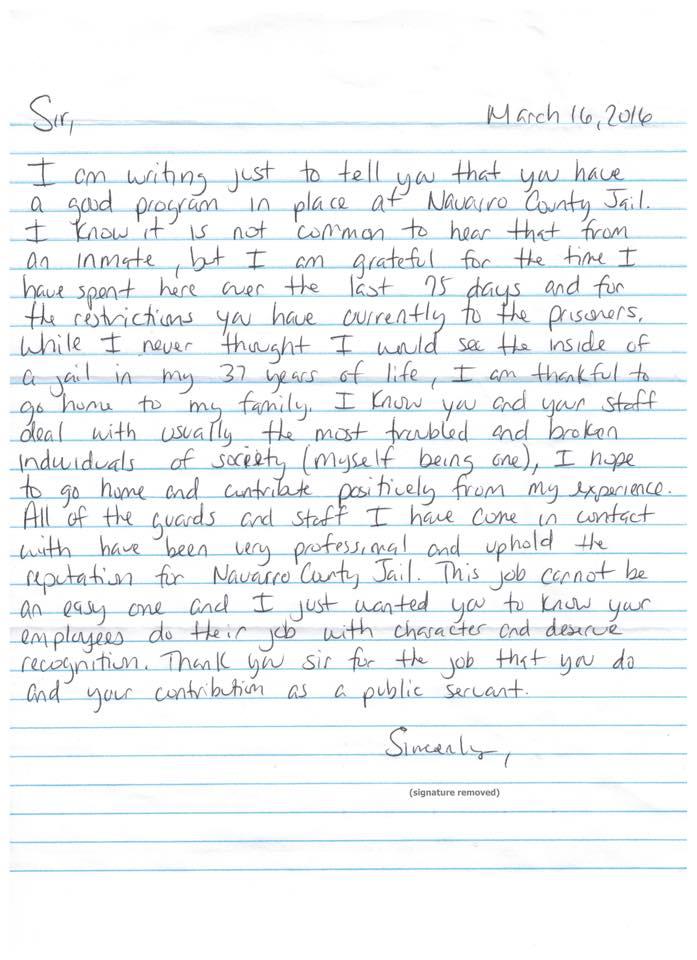 Sir,
March 16, 2016
I am writing just to tell you that you have
a good program in place at Navarro County Jail.
I know it is not common to hear that from
an inmate, but I am grateful for the time I
have spent here over the last 75 days and for
the restrictions you have currently to the prisoners.
While I never thought I would see the inside of
a jail in my 37 years of life, I am thankful to
go home to my family. I know you and your staff
deal with usually the most troubled and broken
individuals of society (myself being one), I hope
to go home and contribute positively from my experience.
All of the guards and staff I have come in contact
with have been very professional and uphold the
reputation for Navarro County Jail. This job cannot be
an easy one and I just wanted you to know your
employees do their job with character and deserve
recognition. Thank you sir for the job that you do
and your contribution as a public servant.
Sincerely,
(signature removed)